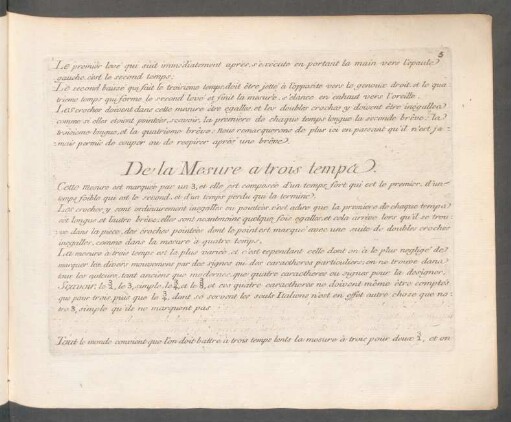 3
Le premier levé qui suit immediatement apres, s'exécute en portant la main vers l'epaule
gauche, c'est le second temps;
Le second baissé qui fait le troisieme temps doit être jetté à l'opposite vers le genoüil droit, et le qua
trieme temps qui forme le second levé et finit la mesure, s'élance en enhaut vers l'oreille.
Les croches doivent dans cette mesure être egalles, et les doubles croches y doivent être inegalles
comme si elles etoient pointées, scavoir, la premiere de chaque temps longue la seconde brêve; la
troisieme longue, et la quatrieme brêve; Nous remarquerons de plus ici en passant qu'il n'est ja-
mais permis de couper ou de respirer après une brêve.
De la Mesure a trois temps.
Cette mesure est marquée par un 3, et elle est composée d'un temps fort qui est le premier, d'un
temps foible qui est le second, et d'un temps perdu qui la termine.
Les croches y sont ordinairement inegalles ou pointées c'est adire que la premiere de chaque temps
est longue et l'autre brêve; elles sont neantmoins quelque fois egalles, et cela arrive lors qu'il se trou-
ve dans la piece, des croches pointées dont le point est marqué avec une suite de doubles croches
inegalles, comme dans la mesure à quatre temps.
La mesure a trois temps est la plus variée et c'est cependant celle dont on a le plus negligé de
marquer les divers mouvemens par des signes ou des caracteres particuliers; on ne trouve dans
tout les auteurs, tant anciens que modernes, que quatre caracteres ou signes pour la designer,
Scavoir; le 3/2, le 3, simple, le 3/4, et le 3/8, et ces quatre caracteres ne doivent même être comptés
que pour trois, puis que le 3/4, dont se servent les seuls Italiens n'est en effet autre chose que no-
tre 3, simple qu'ils ne marquent pas.
Tout le monde convient que l'on doit battre à trois temps lents la mesure à trois pour deux 3/2, et en